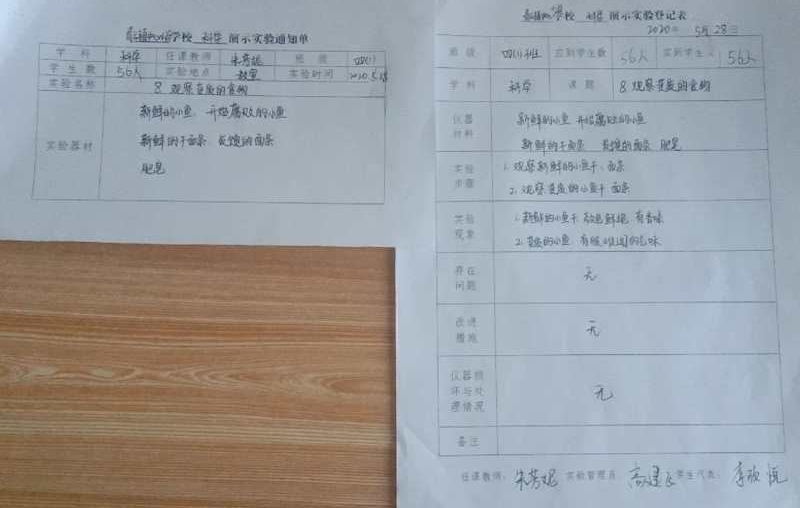 学校 科学 演示实验通知单
学 科 科学 任课教师 朱芳妮 班 级 四(1)
学 生 数 56人 实验地点 教室 实验时间 2020.5.28
实验名称 8 观察变质的食物
实验器材
新鲜的小鱼、开始腐败的小鱼
新鲜的干面条 变馊的面条
肥皂
学校 科学 演示实验登记表
2020年 5月28日
班 级 四(1)班 应到学生数 56人 实到学生 56人
学 科 科学 课 题 8 观察变质的食物
仪器材料
新鲜的小鱼 开始腐败的小鱼
新鲜的干面条 变馊的面条 肥皂
实验步骤
1. 观察新鲜的小鱼干、面条
2. 观察变质的小鱼干 面条
实验现象
1. 新鲜的小鱼干 颜色鲜艳 有香味
2. 变质的小鱼 有
味
存在问题
无
改进措施
无
仪器损坏与处理情况
无
备注
任课教师: 朱芳妮 实验管理员: 高建 学生代表: 李